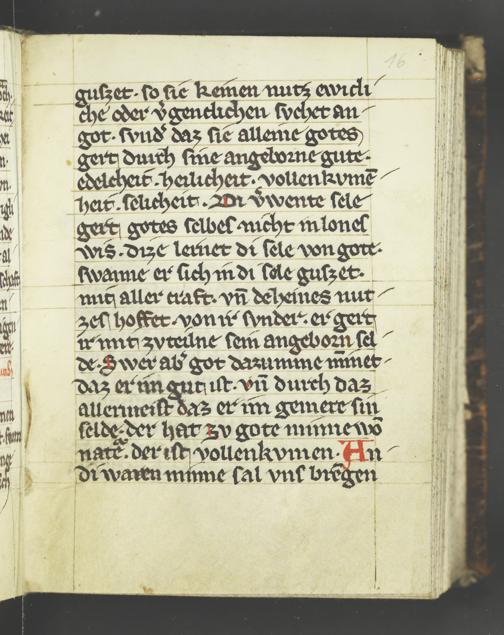 16
guszet · so sie keinen nutz ewicli
che oder v̓gentlichen sychet an
got · svnd̓ daz sie alleine gotes
gert durch sine angeborne gute ·
edelcheit · heilicheit · vollenkvmē
heit · selicheit · Ein v̓wente sele
gert gotes selbes · nicht in lones
wis · dize lernet di sele von gote ·
swanne er sich in di sele guszet ·
mit aller craft · vn̄ deheines nut
zes hoffet · von ir svnder · er gert
ir mit zvteilne sein angeborn sel
de · Swer ab̓ got dazumme minnet
daz er im gut ist · vn̄ durch daz
allermeist daz er im gemere sin
selde · der hat zv gote minne wō
natē · der ist vollenkvmen · An
di waren minne sal vns brēgen